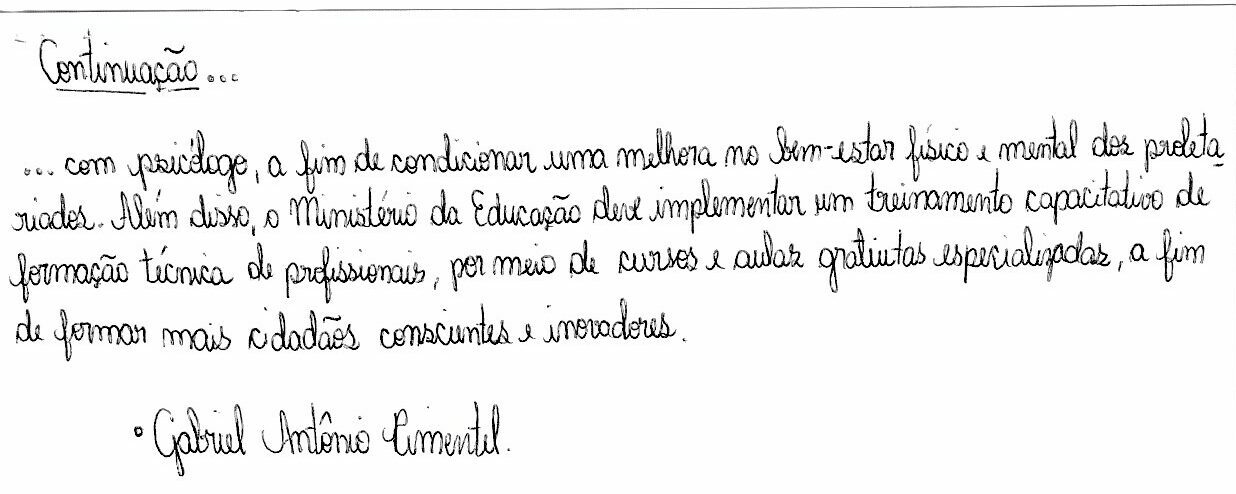 Continuação...
... com psicólogo, a fim de condicionar uma melhora no bem-estar físico e mental dos proleta
riados. Além disso, o Ministério da Educação deve implementar um treinamento capacitativo de
formação técnica de profissionais, por meio de cursos e aulas gratuitas especializadas, a fim
de formar mais cidadãos conscientes e inovadores.
• Gabriel Antônio Pimentel.